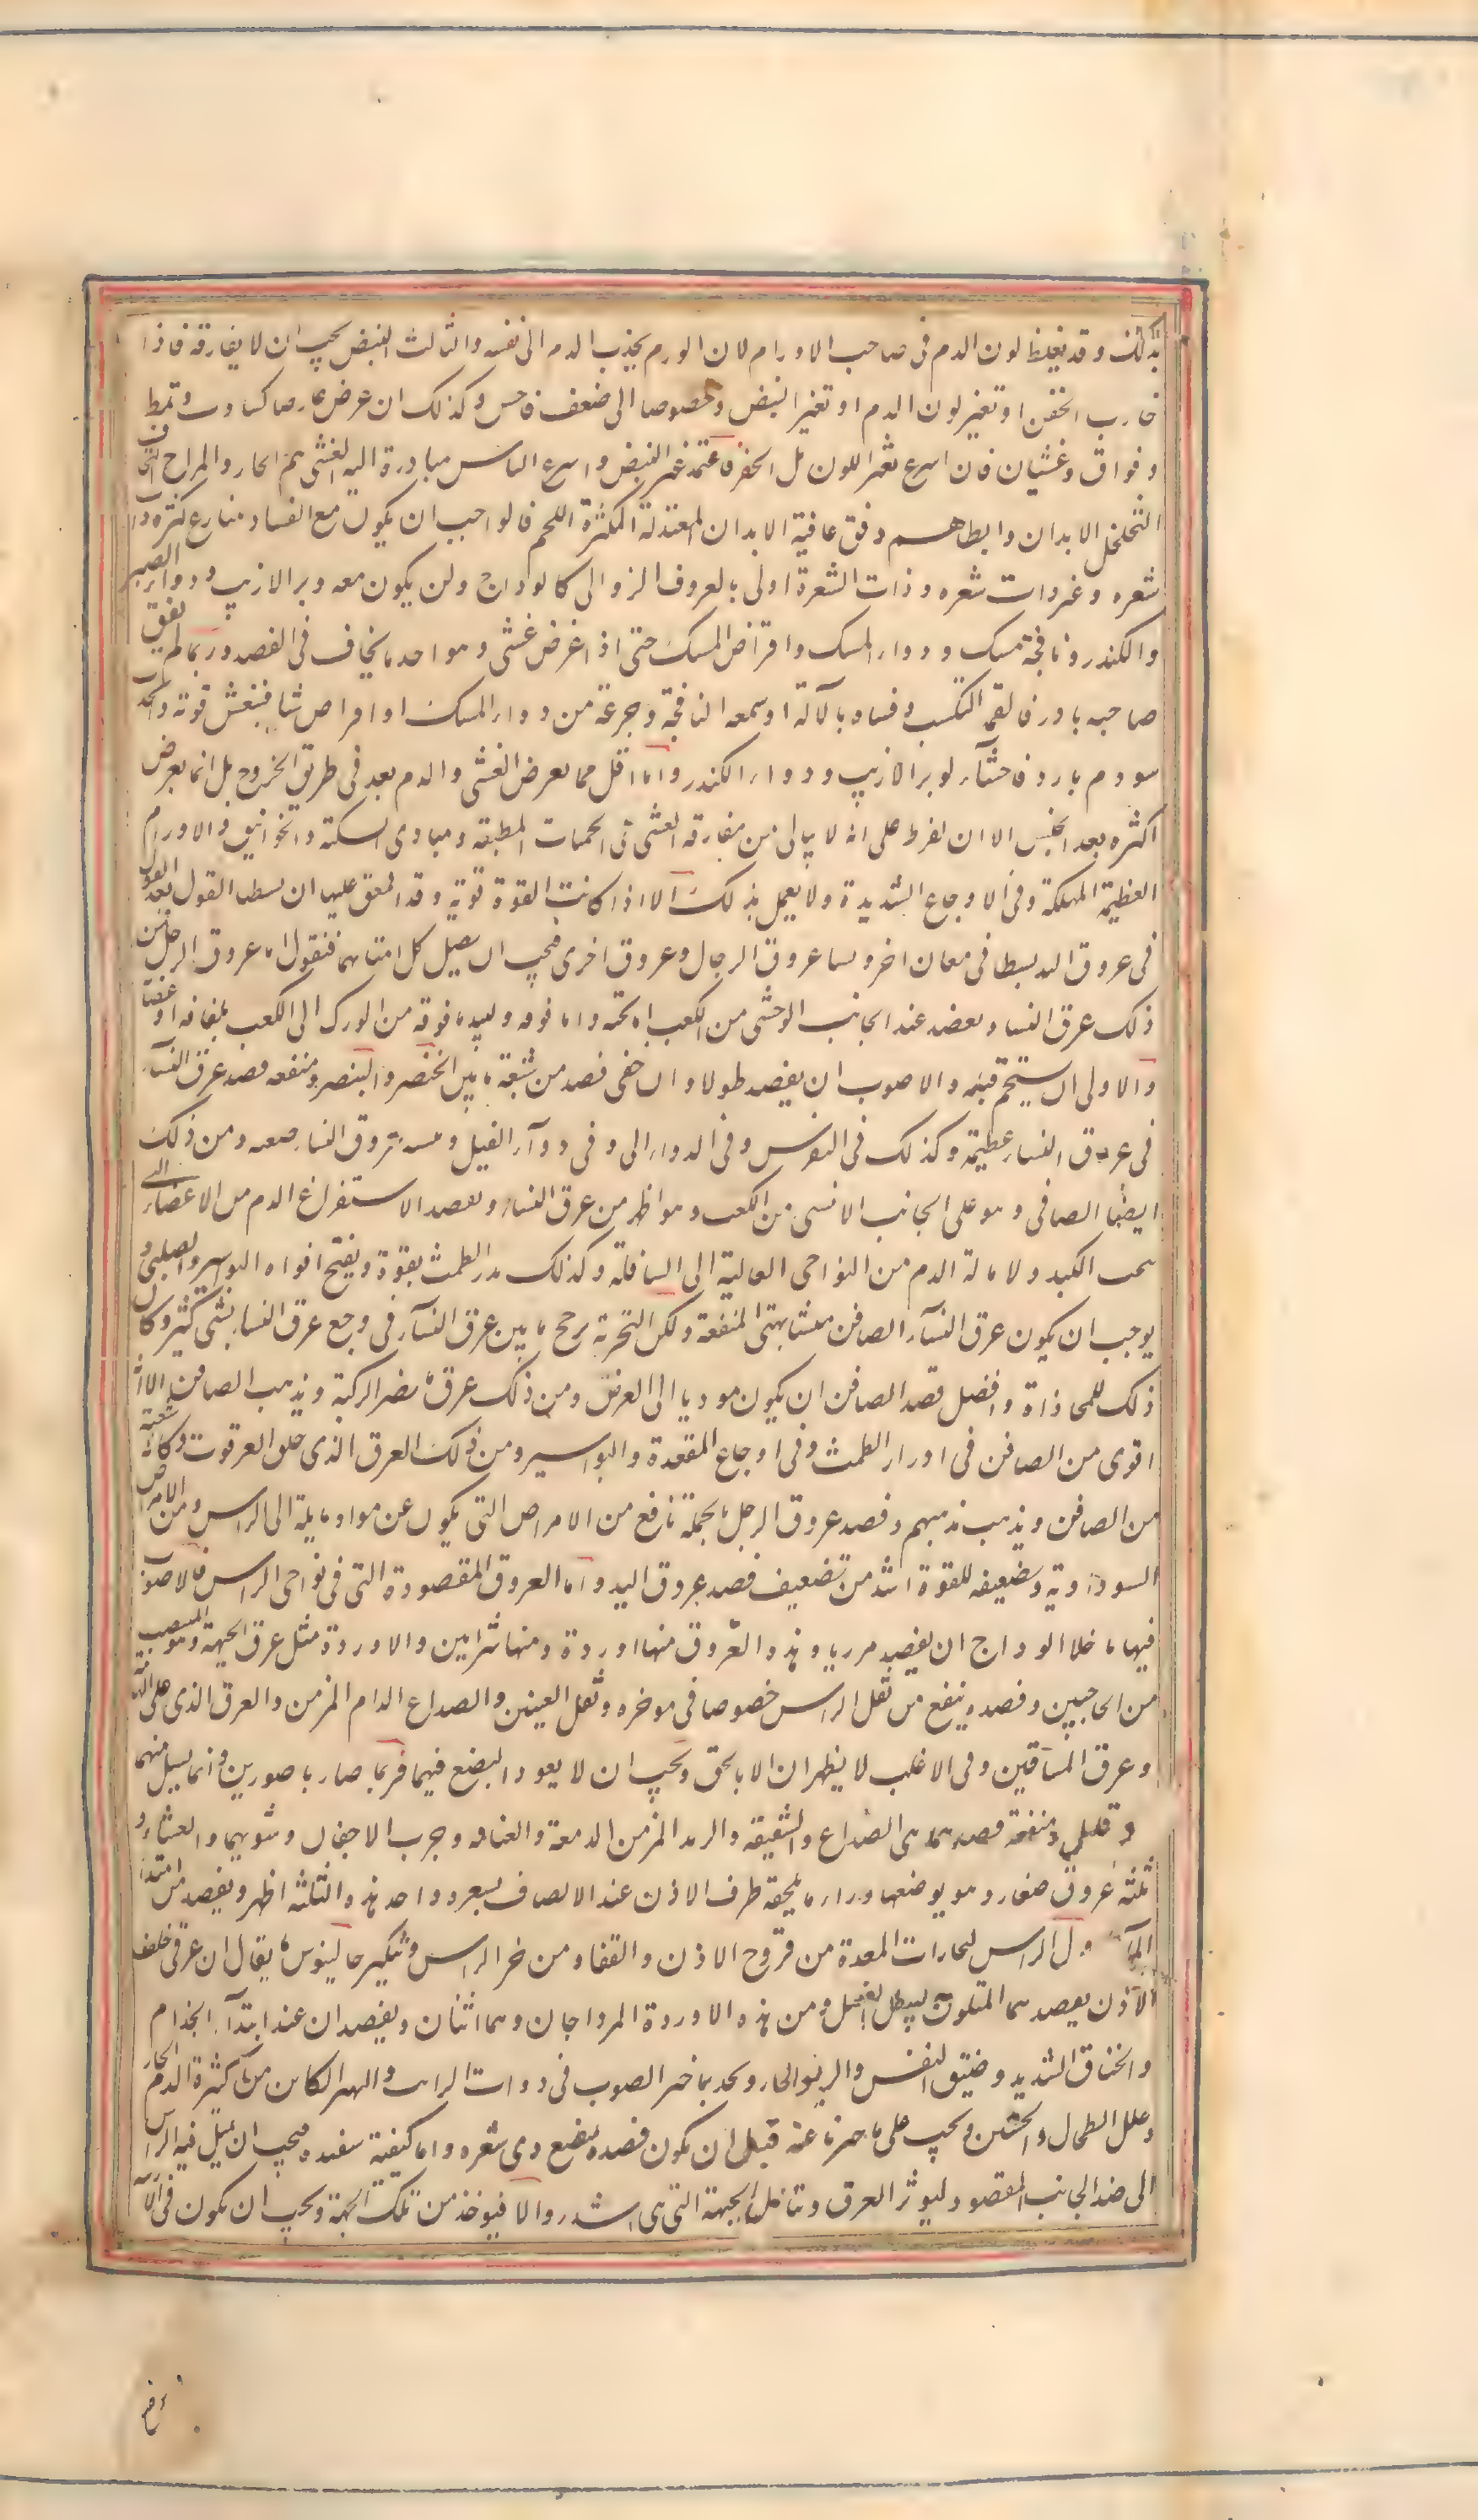 بذلك وقد يغلظ لون الدم فى صاحب الاورام لان الورم يجذب الدم الى نفسه والثالث النبض يجب ان لا يفارقه فاذا
خارب الحفن او تغير لون الدم او تغير النبض وخصوصا الى ضعف فاحبس وكذلك ان عرض عارضا كتثاوب وتمط
وفواق وغشيان فان اسرع تغير اللون بل الحفز فاعتمد فيه النبض واسرع الناس مبادرة اليه الغشى هم الحار والمزاج النحاف
المتخلخل الابدان وابطاهم وفق عافية الابدان المعتدلة المكتثرة اللحم فالواجب ان يكون مع الفصاد مباضع كثيرة ذات
شعره وغير ذات شعره وذات الشعرة اولى بالعروق الزوالى كالوداج وان يكون معه وبر الارنب ودواء الصبر
والكندر ونافجة مسك ودواء المسك واقراض المسك حتى اذا عرض غشى وهو احد ما يخاف فى الفصد وربما لم يفق
صاحبه بادر فالقمه الكبب وقياه بالآلة او شمعه النافجة وجرعة من دواء المسك او اقراص شيا فينعش قوته وان حدث
سودم بادر فاحشاه بوبر الارنب ودواء الكندر واما اقل مما يعرض الغشى والدم بعد فى طريق الخروج بل انما يعرض
اكثره بعد الحبس الا ان يفرط على انه لا يبالى من مفارقة الغشى فى الحميات المطبقة ومبادى السكتة والخوانيق والاورام
العظيمة المهلكة وفى الاوجاع الشديدة ولا يعمل بذلك الا اذا كانت القوة قوية وقد اتفق علينا ان بسطنا القول بعد القول
فى عروق اليد بسطا فى معان اخر ونسينا عروق الرجال وعروق اخرى فيجب ان نصل كلامنا بهما فنقول اما عروق الرجل فمن
ذلك عرق النسا ويفصد عند الجانب الوحشى من الكعب اما تحته واما فوقه ويشد ما فوقه من الورك الى الكعب بلفافه او عصابة
والاولى ان يستحم قبله والاصوب ان يفصد طولا وان خفى فصد من شعبة ما بين الخنصر والبنصر ومنفعه فصد عرق النسا
فى عرق النسا عظيمة وكذلك فى النقرس وفى الدوالى وفى دوآء الفيل وتثنية عروق النسا صعبة ومن ذلك
ايضا الصافن وهو على الجانب الانسى من الكعب وهو اظهر من عرق النسا ويفصد لاستفراغ الدم من الاعضاء التى
تحت الكبد ولامالة الدم من النواحى العالية الى السافلة وكذلك يدر الطمث بقوة ويفتح افواه البواسير والصلبى و
يوجب ان يكون عرق النسآء الصافن متشابهتى المنفعة ولكن التجربة ترجح ما بين عرق النسآء فى وجع عرق النسا بشى كثير وكان
ذلك للمحاذاة وافضل فصد الصافن ان يكون موديا الى العرض ومن ذلك عرق مابض الركبة ويذهب الصافن الا انه
اقوى من الصافن فى ادرار الطمث وفى اوجاع المقعدة والبواسير ومن ذلك العرق الذى خلف العرقوب وكانه شعبة
من الصافن ويذهب مذهبهم وفصد عروق الرجل بالجملة نافع من الامراض التى يكون عن مواد مايلة الى الراس ومن الامراض
السوداوية وتضعيفه للقوة اشد من تضعيف فصد عروق اليد واما العروق المفصودة التى فى نواحى الراس فالاصوب
فيها ما خلا الوداج ان يفصد مرربا وهذه العروق منها اوردة ومنها شرايين والاوردة مثل عرق الجبهة وهو المنتصب
من الحاجبين وفصده ينفع من ثقل الراس خصوصا فى موخره وثقل العينين والصداع الدايم المزمن والعرق الذى على الهامة
وعرق الماقين وفى الاغلب لا يظهران الا بالخنق ويجب ان لا يعود البضع فيهما فربما صار باصورين وانما يسيل منهما
دم قليل ومنفعة فصدهما فى الصداع والشقيقة والرمد المزمن الدمعة والغشاوة وجرب الاجفان وبثورهما والعشاء و
ثلثة عروق صغار وهو يوضعها وراء ما يلحقه طرف الاذن عند الالصاق بشعره واحد هذه والثلثة اظهر ويفصد من ابتداء
المآء وقبول الراس لبخارات المعدة من قروح الاذن والقفا ومن خر الراس وينكير جالينوس ما يقال ان عرقى خلف
الآذن يفصدهما المتبتلون ليبطل النسل ومن هذه الاوردة المرواجان وهما اثنان ويفصدان عند ابتدآء الجذام
والخناق الشديد وضيق النفس والربو الحار وبحة الصوت فى ذوات الرية والبهر الكاين من كثيرة الدم الحار
وعلل الطحال والجنبين ويجب على ما خبرنا عنه قبل ان يكون فصده بمبضع ذى شعره واما كيفية تقييده فيجب ان يميل فيه الراس
الى ضد الجانب المقصود ليوثر العرق ونتامل الجهة التى هى اشد زوالا فيوخذ من تلك الجهة ويجب ان يكون فى الآ